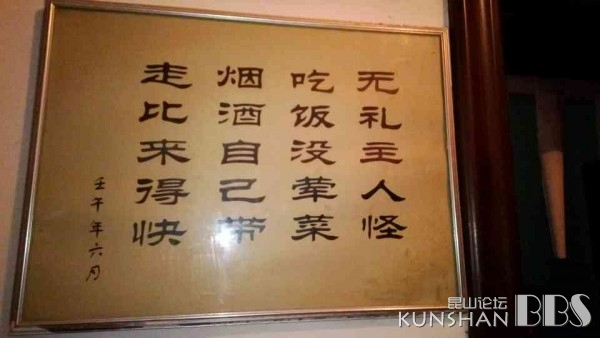 无礼主人怪
吃饭没荤菜
烟酒自己带
走比来得快
壬午年六月
昆山论坛
KUNSHAN BBS